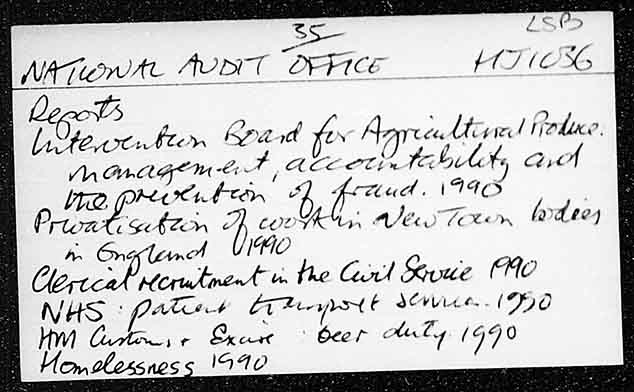 35
LSB
NATIONAL AUDIT OFFICE HJ1036
Reports
Intervention Board for Agricultural Produce.
management, accountability and
the prevention of fraud. 1990
Privatisation of work in New Town bodies
in England 1990
Clerical recruitment in the Civil Service 1990
NHS : patient transport service. 1990
HM Customs & Excise : beer duty 1990
Homelessness 1990